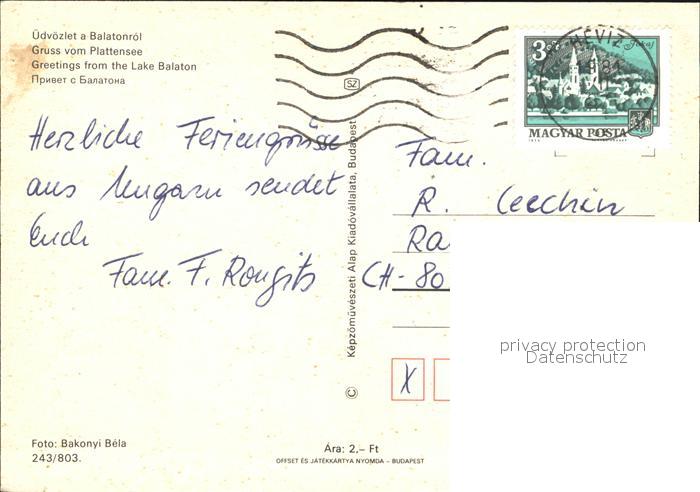 Üdvözlet a Balatonról
Gruss vom Plattensee
Greetings from the Lake Balaton
Привет с Балатона
SZ
HÉVIZ
3 Ft
Tokaj
MAGYAR POSTA
Herzliche Feriengrüsse
aus Ungarn sendet
Euch
Fam. F. Rongits
© Képzőművészeti Alap Kiadóvállalata, Budapest
Fam.
R. Cecchin
Ra
CH-80
X
privacy protection
Datenschutz
Foto: Bakonyi Béla
243/803.
Ára: 2,– Ft
OFFSET ÉS JÁTÉKKÁRTYA NYOMDA – BUDAPEST